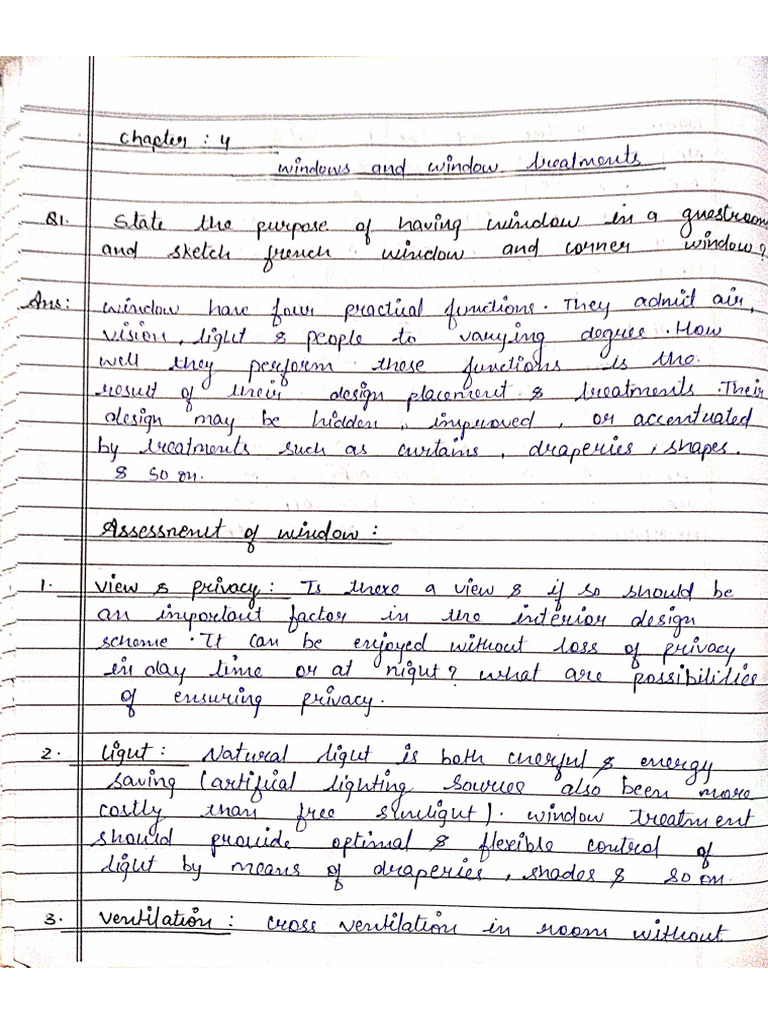 Chapter : 4
windows and window treatments
Q1. State the purpose of having window in a guestroom
and sketch french window and corner window?
Ans: window have four practical functions. They admit air,
vision, light & people to varying degree. How
well they perform these functions is the
result of their design placement & treatments. Their
design may be hidden, improved, or accentuated
by treatments such as curtains, draperies, shapes.
& so on.
Assessment of window :
1. view & privacy : Is there a view & if so should be
an important factor in the interior design
scheme. It can be enjoyed without loss of privacy
in day time or at night? what are possibilities
of ensuring privacy.
2. Light : Natural light is both cheerful & energy
saving (artifical lighting sources also been more
costly than free sunlight). window treatment
should provide optimal & flexible control of
light by means of draperies, shades & so on.
3. ventilation : cross ventilation in room without